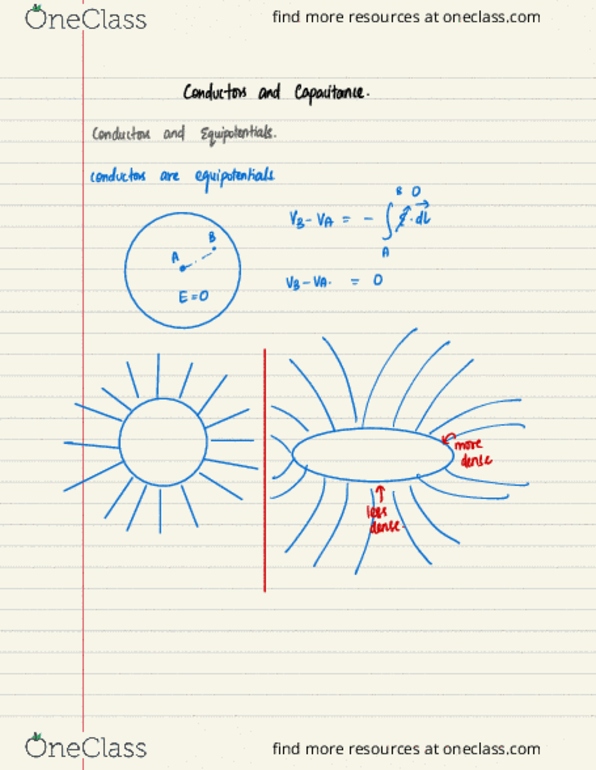 OneClass find more resources at oneclass.com
Conductors and Capacitance.
Conductors and Equipotentials.
conductors are equipotentials
B 0
V_B - V_A = - ∫ E⃗ · dL⃗
A
V_B - V_A. = 0
A B
E = 0
more
dense
less
dense.
OneClass find more resources at oneclass.com